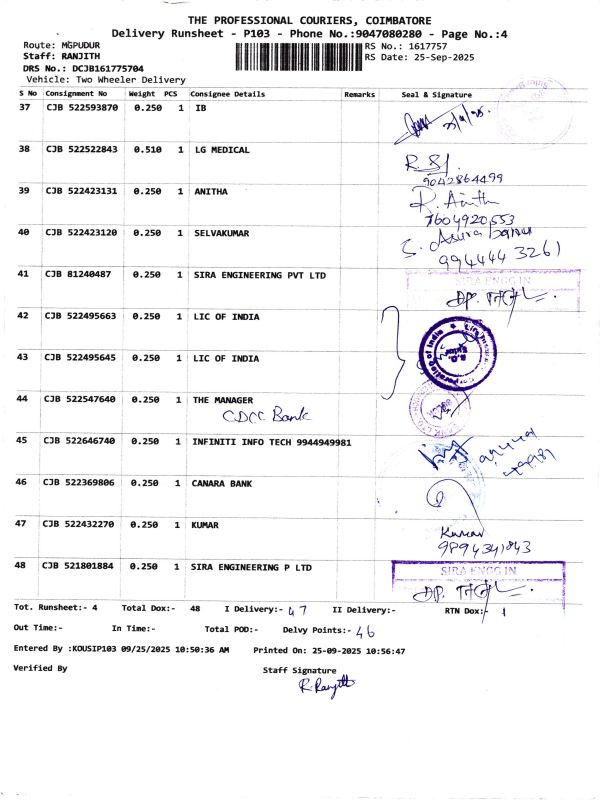 THE PROFESSIONAL COURIERS, COIMBATORE
Delivery Runsheet - P103 - Phone No.:9047080280 - Page No.:4
Route: MGPUDUR RS No.: 1617757
Staff: RANJITH RS Date: 25-Sep-2025
DRS No.: DCJB161775704
Vehicle: Two Wheeler Delivery
S No Consignment No Weight PCS Consignee Details Remarks Seal & Signature
37 CJB 522593870 0.250 1 IB
38 CJB 522522843 0.510 1 LG MEDICAL
9042864499
39 CJB 522423131 0.250 1 ANITHA
7604920553
40 CJB 522423120 0.250 1 SELVAKUMAR
994444 3261
41 CJB 81240487 0.250 1 SIRA ENGINEERING PVT LTD SIRA ENGG IN
42 CJB 522495663 0.250 1 LIC OF INDIA
43 CJB 522495645 0.250 1 LIC OF INDIA
44 CJB 522547640 0.250 1 THE MANAGER
CDCC Bank
45 CJB 522646740 0.250 1 INFINITI INFO TECH 9944949981
46 CJB 522369806 0.250 1 CANARA BANK
47 CJB 522432270 0.250 1 KUMAR Kumar
9894341843
48 CJB 521801884 0.250 1 SIRA ENGINEERING P LTD SIRA ENGG IN
Tot. Runsheet:- 4 Total Dox:- 48 I Delivery:- 47 II Delivery:- RTN Dox:- 1
Out Time:- In Time:- Total POD:- Delvy Points:- 46
Entered By :KOUSIP103 09/25/2025 10:50:36 AM Printed On: 25-09-2025 10:56:47
Verified By Staff Signature
R. Ranjith